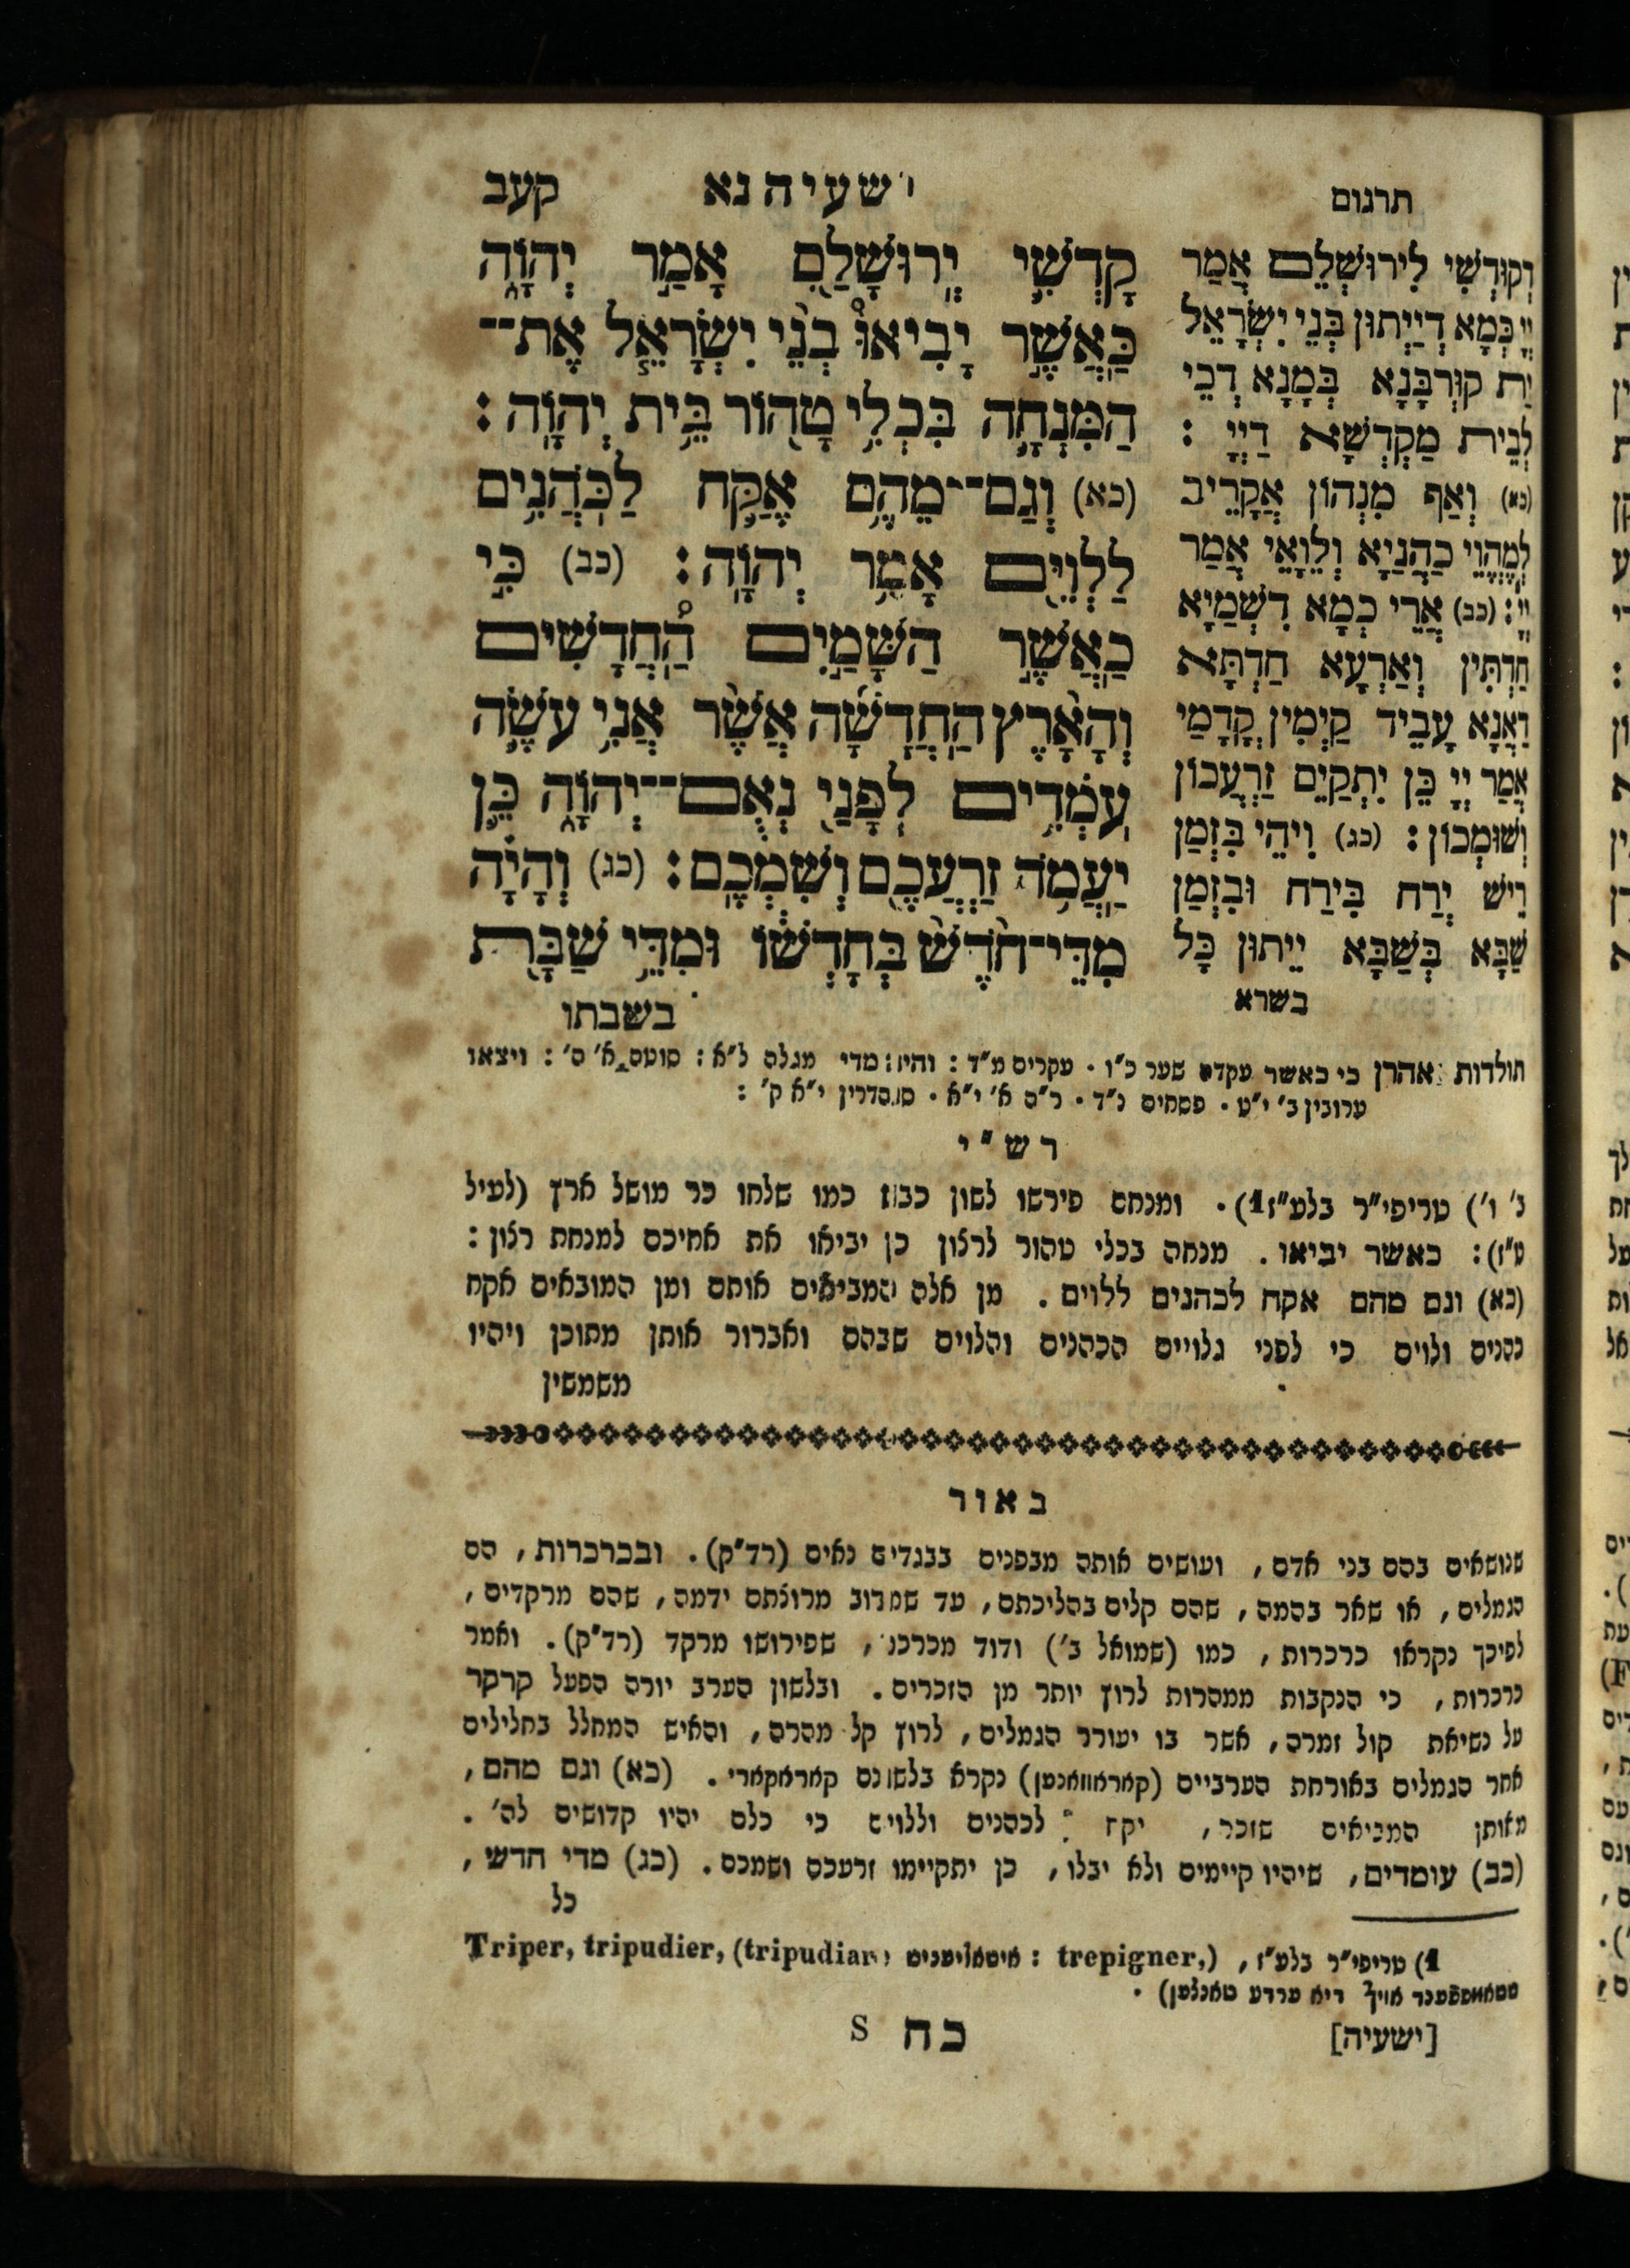 תרגום
ישעיה נא
קעב
וְקוּדְשִׁי לִירוּשְׁלֵם אֲמַר
יְיָ כְּמָא דְיַיְתוּן בְּנֵי יִשְׂרָאֵל
יַת קוּרְבָּנָא בְּמָנָא דְכֵי
לְבֵית מַקְדְשָׁא דַיְיָ :
(כא) וְאַף מִנְהוֹן אֲקָרֵיב
לְמֶהֱוֵי כַהֲנַיָא וְלֵוָאֵי אֲמַר
יְיָ : (כב) אֲרֵי כְמָא דִשְׁמַיָא
חַדְתִּין וְאַרְעָא חַדְתָּא
דַאֲנָא עָבֵיד קַיְמִין קֳדָמַי
אֲמַר יְיָ כֵּן יִתְקַיֵם זַרְעֲכוֹן
וְשׁוּמְכוֹן : (כג) וִיהֵי בִּזְמַן
רֵישׁ יְרַח בִּירַח וּבִזְמַן
שַׁבָּא בְּשַׁבָּא יֵיתוּן כָּל
בשרא
קָדְשִׁי יְרוּשָׁלַםִ אָמַר יְהוָה
כַּאֲשֶׁר יָבִיאוּ בְנֵי יִשְׂרָאֵל אֶת־
הַמִּנְחָה בִּכְלִי טָהוֹר בֵּית יְהוָה :
(כא) וְגַם־מֵהֶם אֶקַּח לַכֹּהֲנִים
לַלְוִיִּם אָמַר יְהוָה : (כב) כִּי
כַאֲשֶׁר הַשָּׁמַיִם הַחֲדָשִׁים
וְהָאָרֶץ הַחֲדָשָׁה אֲשֶׁר אֲנִי עֹשֶׂה
עֹמְדִים לְפָנַי נְאֻם־יְהוָה כֵּן
יַעֲמֹד זַרְעֲכֶם וְשִׁמְכֶם : (כג) וְהָיָה
מִדֵּי־חֹדֶשׁ בְּחָדְשׁוֹ וּמִדֵּי שַׁבָּת
בשבתו
תולדות אהרן כי כאשר עקדה שער כ״ו . עקרים מ״ד : והיה מדי מגלה ל״א : סוטה א׳ ה׳ : ויצאו
ערובין ב׳ י״ט . פסחים נ״ד . ר״ה א׳ י״א . סנהדרין י״א ק׳ :
רש״י
נ׳ ו׳) טריפי״ר בלע״ז1) . ומנחם פירשו לשון כבוד כמו שלחו כר מושל ארץ (לעיל
ט״ז) : כאשר יביאו . מנחה בכלי טהור לרצון כן יביאו את אחיכם למנחת רצון :
(כא) וגם מהם אקח לכהנים ללוים . מן אלה המביאים אותם ומן המובאים אקח
כהנים ולוים כי לפני גלויים הכהנים והלוים שבהם ואברור אותן מתוכן ויהיו
משמשין
באור
שנושאים בהם בני אדם , ועושים אותה מבפנים בבגדים נאים (רד״ק) . ובכרכרות , הם
הגמלים , או שאר בהמה , שהם קלים בהליכתם , עד שמרוב מרוצתם ידמה , שהם מרקדים ,
לפיכך נקראו כרכרות , כמו (שמואל ב׳) ודוד מכרכר , שפירושו מרקד (רד״ק) . ואמר
כרכרות , כי הנקבות ממהרות לרוץ יותר מן הזכרים . ובלשון הערב יורה הפעל קרקר
על נשיאת קול זמרה , אשר בו יעורר הגמלים , לרוץ קל מהרה , והאיש המחלל בחלילים
אחר הגמלים באורחת הערביים (קאראוואנען) נקרא בלשונם קאראקארי . (כא) וגם מהם ,
מאותן המביאים שזכר , יקח לכהנים וללוים כי כלם יהיו קדושים לה׳ .
(כב) עומדים , שיהיו קיימים ולא יבלו , כן יתקיימו זרעכם ושמכם . (כג) מדי חדש ,
כל
1) טריפי״ר בלע״ז , Triper, tripudier, (tripudiare איטאליעניש : trepigner,)
אויף דיא ערדע טאנצען) .
[ישעיה]
כח S